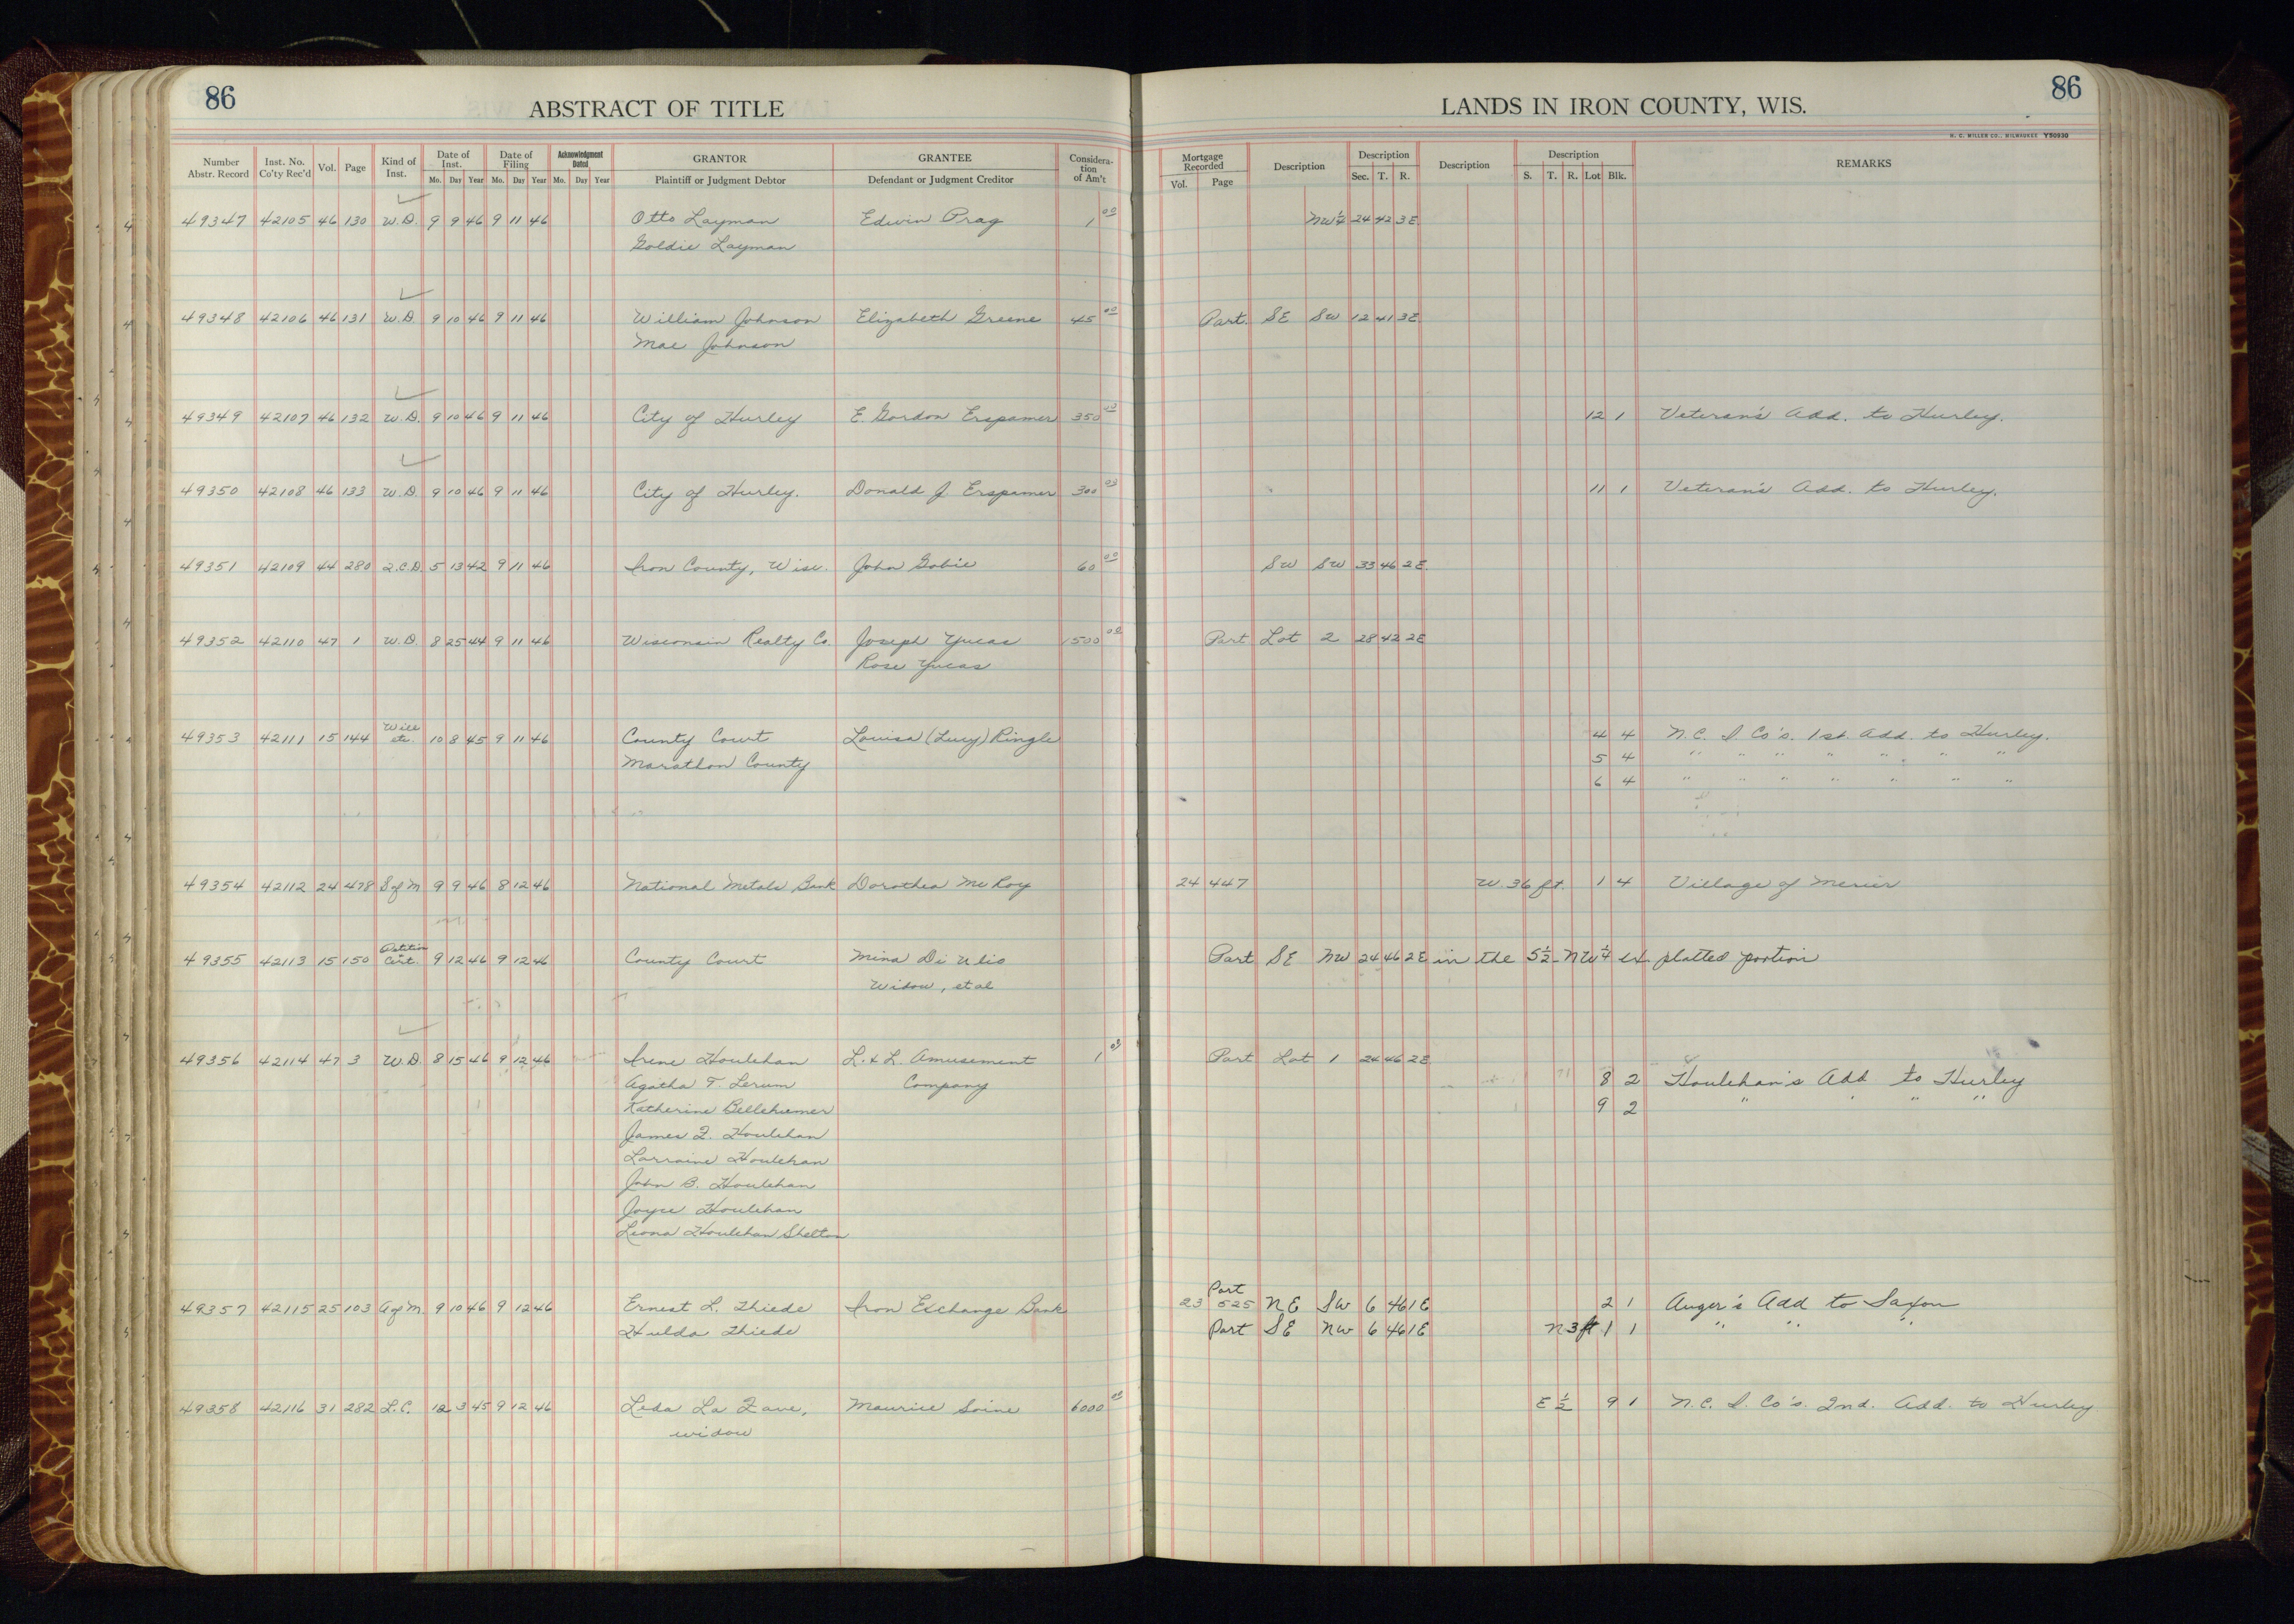 86
ABSTRACT OF TITLE
LANDS IN IRON COUNTY, WIS.
86
H. C. MILLER CO., MILWAUKEE Y50930
Number Abstr. Record Inst. No. Co'ty Rec'd Vol. Page Kind of Inst. Date of Inst. Mo. Day Year Date of Filing Mo. Day Year Acknowledgment Dated Mo. Day Year GRANTOR Plaintiff or Judgment Debtor GRANTEE Defendant or Judgment Creditor Considera-tion of Am't Mortgage Recorded Vol. Page Description Description Sec. T. R. Description Description S. T. R. Lot Blk. REMARKS
49347 42105 46 130 W.D. 9 9 46 9 11 46 Otto Layman Edwin Prag 1 00 NW¼ 24 42 3E
Goldie Layman
49348 42106 46 131 W.D. 9 10 46 9 11 46 William Johnson Elizabeth Greene 45 00 Part SE SW 12 41 3E
Mae Johnson
49349 42107 46 132 W.D. 9 10 46 9 11 46 City of Hurley E. Gordon Erspamer 350 00 12 1 Veteran's Add. to Hurley.
49350 42108 46 133 W.D. 9 10 46 9 11 46 City of Hurley. Donald J. Erspamer 300 00 11 1 Veteran's Add. to Hurley.
49351 42109 44 280 Q.C.D. 5 13 42 9 11 46 Iron County, Wisc. John Gobie 60 00 SW SW 33 46 2E
49352 42110 47 1 W.D. 8 25 44 9 11 46 Wisconsin Realty Co. Joseph Yucas 1500 00 Part Lot 2 28 42 2E
Rose Yucas
49353 42111 15 144 Will etc. 10 8 45 9 11 46 County Court Louisa (Lucy) Ringle 4 4 N.C. I Co's. 1st. Add. to Hurley.
Marathon County 5 4 " " " " " " "
6 4 " " " " " " "
49354 42112 24 478 S of M 9 9 46 8 12 46 National Metals Bank Dorothea McRoy 24 447 W. 36 ft. 1 4 Village of Mercer
49355 42113 15 150 Petition Cert. 9 12 46 9 12 46 County Court Mina Di Ulio Part SE NW 24 46 2E in the S½ NW¼ ex platted portion
Widow, et al
49356 42114 47 3 W.D. 8 15 46 9 12 46 Irene Houlehan L. & L. Amusement 1 00 Part Lot 1 24 46 2E
Agatha T. Lerum Company 8 2 Houlehan's Add to Hurley
Katherine Bellehumer 9 2 " " " "
James F. Houlehan
Lorraine Houlehan
John B. Houlehan
Joyce Houlehan
Leona Houlehan Shelton
49357 42115 25 103 A of M. 9 10 46 9 12 46 Ernest L. Thiede Iron Exchange Bank 23 525 Part NE SW 6 46 1E 2 1 Auger's Add to Saxon
Hulda Thiede Part SE NW 6 46 1E N 3 ft 1 1 " " "
49358 42116 31 282 L.C. 12 3 45 9 12 46 Leda La Fave, Maurice Soine 6000 00 E ½ 9 1 N.C. I. Co's. 2nd. Add. to Hurley
widow